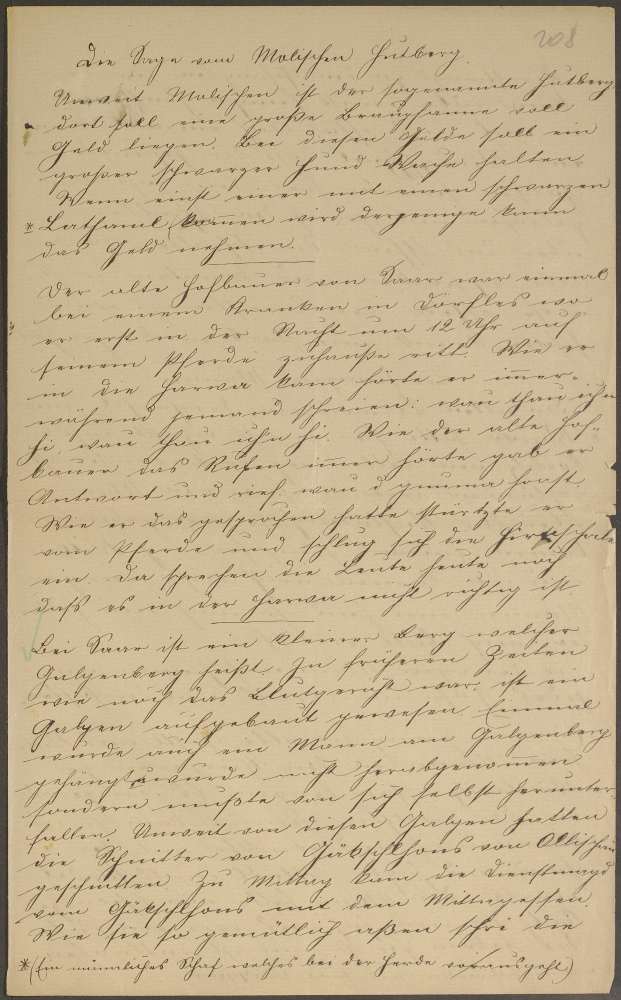 208
Die Sage vom Molischen Hutberg.
Unweit Molischen ist der sogenannte Hutberg
dort soll eine große Braupfanne voll
Geld liegen. Bei diesen Gelde soll ein
großer schwarzer Hund Wache halten.
Wenn einst einer mit einen schwarzen
* Lathaml kommen wird derjenige kann
das Geld nehmen.
Der alte Hofbauer von Saar war einmal
bei einem Kranken in Dörfles wo
er erst in der Nacht um 12 Uhr auf
seinem Pferde zuhauße ritt. Wie er
in die Harwa kam hörte er immer-
während jemand schreien: wau thau ich'n
hi, wau thau ich'n hi. Wie der alte Hof-
bauer das Rufen immer hörte gab er
Antwort und rief. wau d gnumma host.
Wie er das gesprochen hatte stürtzte er
vom Pferde und schlug sich die Hirnschale
ein. Da sprechen die Leute heute noch
dass es in der Harwa nicht richtig ist
Bei Saar ist ein kleiner Berg welcher
Galgenberg heißt. In früheren Zeiten
wie noch das Blutgericht war, ist ein
Galgen aufgebaut gewesen. Einmal
wurde auch ein Mann am Galgenberg
gehängt u wurde nicht herabgenomen
sondern mußte von sich selbst herunter-
fallen. Unweit von diesen Galgen hatten
die Schnitter von Gäkschlhons von Ollischau
geschnitten. Zu Mittag kam die Dienstmagd
vom Gäkschlhons mit dem Mittagessen.
Wie sie so gemütlich aßen schri die
* (Ein männliches Schaf welches bei der Herde vorausgeht)